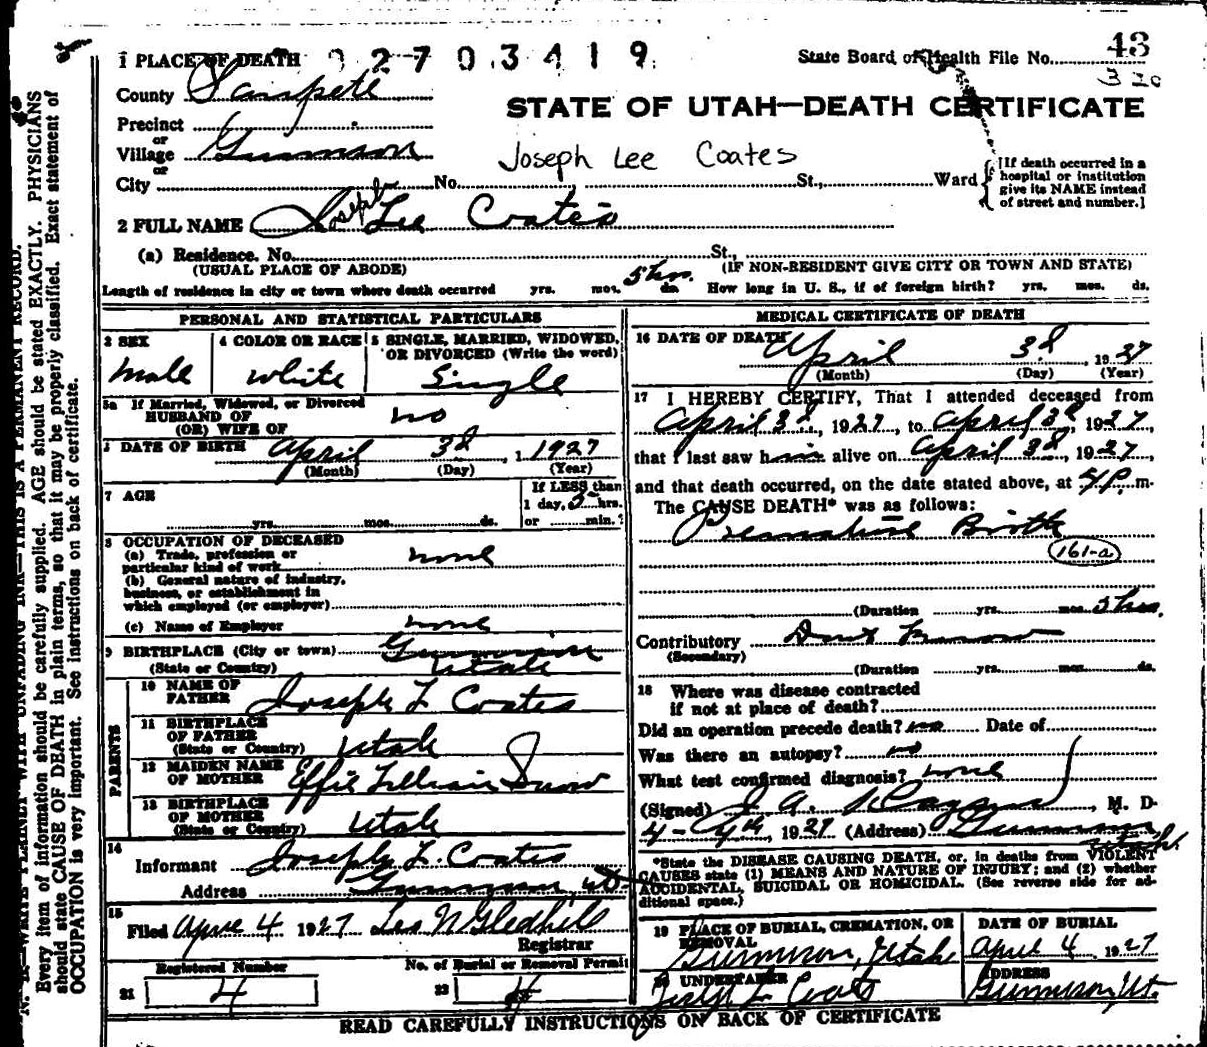 1 PLACE OF DEATH 92703419
State Board of Health File No. 43
320
County Sanpete
STATE OF UTAH—DEATH CERTIFICATE
Precinct
or
Village Gunnison
or
Joseph Lee Coates
City No. St., Ward
[If death occurred in a hospital or institution give its NAME instead of street and number.]
2 FULL NAME Joseph Lee Coates
(a) Residence. No. St.,
(USUAL PLACE OF ABODE) (IF NON-RESIDENT GIVE CITY OR TOWN AND STATE)
Length of residence in city or town where death occurred yrs. mos. 5 hrs. ds. How long in U. S., if of foreign birth? yrs. mos. ds.
PERSONAL AND STATISTICAL PARTICULARS
3 SEX
Male
4 COLOR OR RACE
White
5 SINGLE, MARRIED, WIDOWED, OR DIVORCED (Write the word)
Single
5a If Married, Widowed, or Divorced
HUSBAND OF
(OR) WIFE OF no
DATE OF BIRTH April 3d, 1927
(Month) (Day) (Year)
7 AGE
yrs. mos. ds.
If LESS than
1 day, 5 hrs.
or min.?
8 OCCUPATION OF DECEASED
(a) Trade, profession or
particular kind of work none
(b) General nature of industry,
business, or establishment in
which employed (or employer)
(c) Name of Employer none
9 BIRTHPLACE (City or town) Gunnison
(State or Country) Utah
PARENTS
10 NAME OF
FATHER Joseph L. Coates
11 BIRTHPLACE
OF FATHER
(State or Country) Utah
12 MAIDEN NAME
OF MOTHER Effie Lillian Snow
13 BIRTHPLACE
OF MOTHER
(State or Country) Utah
14
Informant Joseph L. Coates
Address Gunnison, Ut
15
Filed April 4 1927 Leo N Gledhill
Registrar
Registered Number
21 4
No. of Burial or Removal Permit
22 4
MEDICAL CERTIFICATE OF DEATH
16 DATE OF DEATH April 3d 1927
(Month) (Day) (Year)
17 I HEREBY CERTIFY, That I attended deceased from
April 3d, 1927, to April 3d, 1927,
that I last saw him alive on April 3d, 1927,
and that death occurred, on the date stated above, at P. m.
The CAUSE DEATH* was as follows:
Premature Birth
161-a
(Duration yrs. mos. 5 hrs.
Contributory Dont Know
(Secondary)
(Duration yrs. mos. ds.
18 Where was disease contracted
if not at place of death?
Did an operation precede death? no Date of
Was there an autopsy? no
What test confirmed diagnosis? none
(Signed) J. A., M. D.
4-4th, 1927 (Address) Gunnison
Utah.
*State the DISEASE CAUSING DEATH, or, in deaths from VIOLENT
CAUSES state (1) MEANS AND NATURE OF INJURY; and (2) whether
ACCIDENTAL, SUICIDAL OR HOMICIDAL. (See reverse side for ad-
ditional space.)
19 PLACE OF BURIAL, CREMATION, OR
REMOVAL
Gunnison, Utah
DATE OF BURIAL
April 4, 1927
20 UNDERTAKER
L Coats
ADDRESS
Gunnison, Ut.
READ CAREFULLY INSTRUCTIONS ON BACK OF CERTIFICATE
N. B.—WRITE PLAINLY WITH UNFADING INK—THIS IS A PERMANENT RECORD.
Every item of information should be carefully supplied. AGE should be stated EXACTLY. PHYSICIANS
should state CAUSE OF DEATH in plain terms, so that it may be properly classified. Exact statement of
OCCUPATION is very important. See instructions on back of certificate.